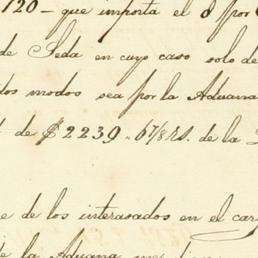 120 - que importa el 8 por
de Seda en cuyo caso solo de
dos modos sea por la Aduana
de $2239.. 6 7/8 rs. de la
e de los interasados en el car
de la Aduana me